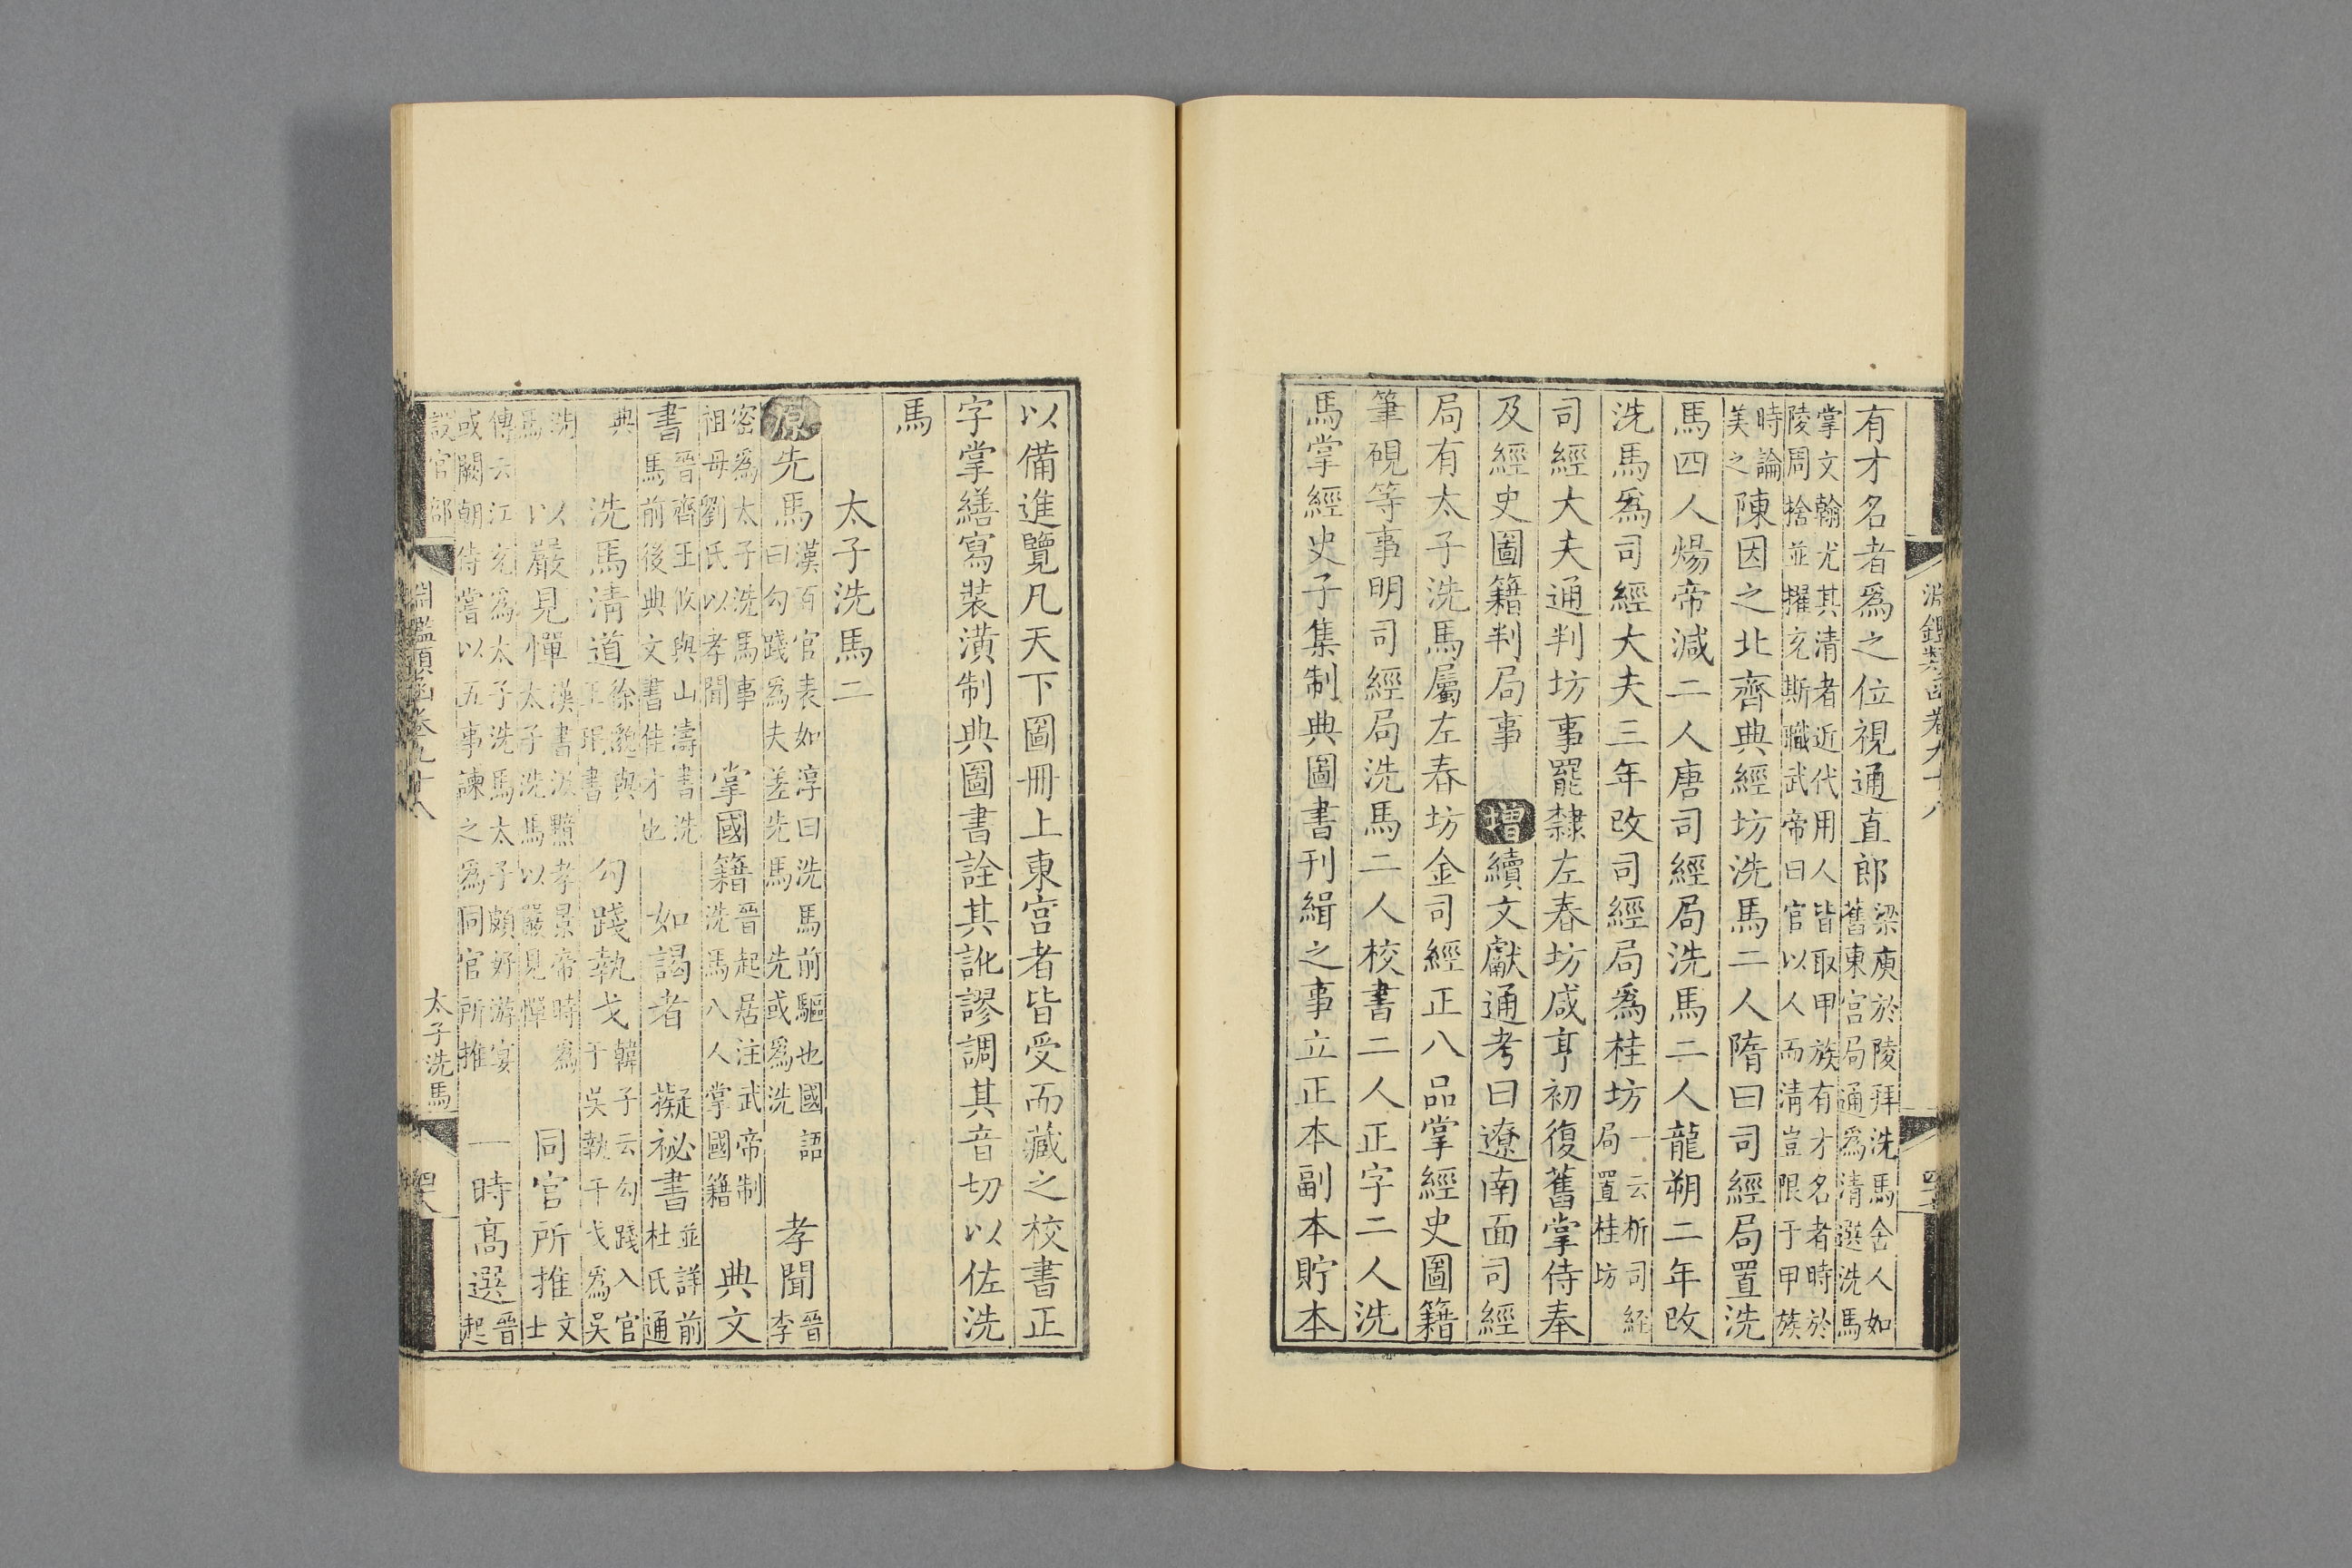 有才名者爲之位視通直郎梁庾於陵拜洗馬舍人如舊東宮局通爲清選洗馬
掌文翰尤其清者近代用人皆取甲族有才名者時於陵周捨並擢充斯職武帝曰官以人而清豈限于甲族
時論美之陳因之北齊典經坊洗馬二人隋曰司經局置洗
馬四人煬帝減二人唐司經局洗馬二人龍朔二年改
洗馬爲司經大夫三年改司經局爲桂坊一云析司經局置桂坊
司經大夫通判坊事罷隸左春坊咸亨初復舊掌侍奉
及經史圖籍判局事增續文獻通考曰遼南面司經
局有太子洗馬屬左春坊金司經正八品掌經史圖籍
筆硯等事明司經局洗馬二人校書二人正字二人洗
馬掌經史子集制典圖書刊緝之事立正本副本貯本
以備進覽凡天下圖冊上東宮者皆受而藏之校書正
字掌繕寫裝潢制典圖書詮其訛謬調其音切以佐洗
馬
太子洗馬二
原先馬漢百官表如淳曰洗馬前驅也國語曰勾踐爲夫差先馬先或爲洗孝聞晉李
密爲太子洗馬事祖母劉氏以孝聞掌國籍晉起居注武帝制洗馬八人掌國籍典文
書晉齊王攸與山濤書洗馬前後典文書佳才也如謁者擬祕書並詳前杜氏通
典洗馬清道徐邈與王珉書勾踐執戈韓子云勾踐入官于吳執干戈爲吳
洗馬以嚴見憚漢書汲黯孝景帝時爲太子洗馬以嚴見憚同官所推文士
傳云江充爲太子洗馬太子頗好游宴或闕朝侍嘗以五事諫之爲同官所推一時高選晉起
淵鑑類函卷九十八
太子洗馬